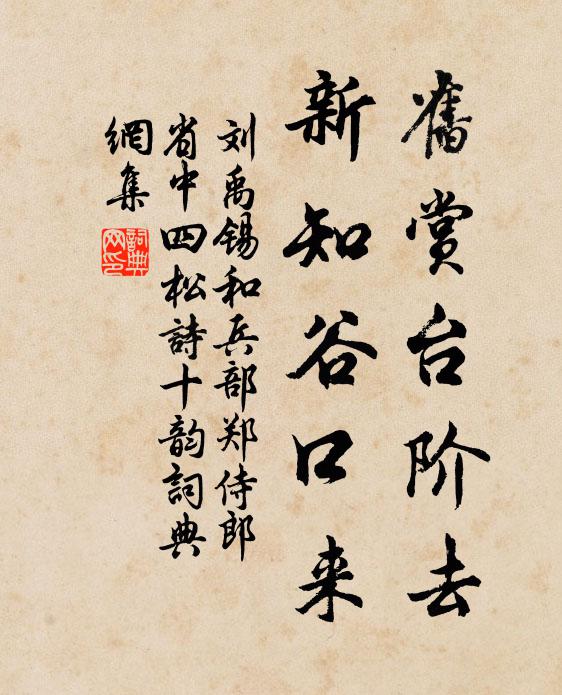 舊赏台阶去
新知谷口来
刘禹锡和兵部郑侍郎
省中四松詩十韵詞典
網集
詞典
网印